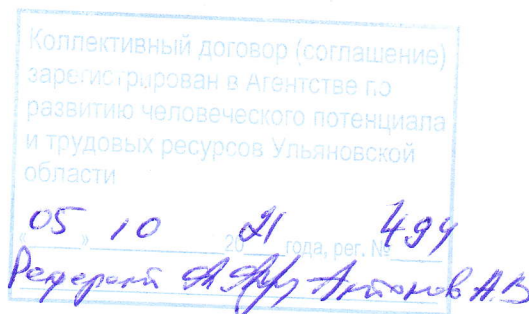 Коллективный договор (соглашение)
зарегистрирован в Агентстве по
развитию человеческого потенциала
и трудовых ресурсов Ульяновской
области
«05» 10 2021 года, рег. № 494
Референт Антонов А.В